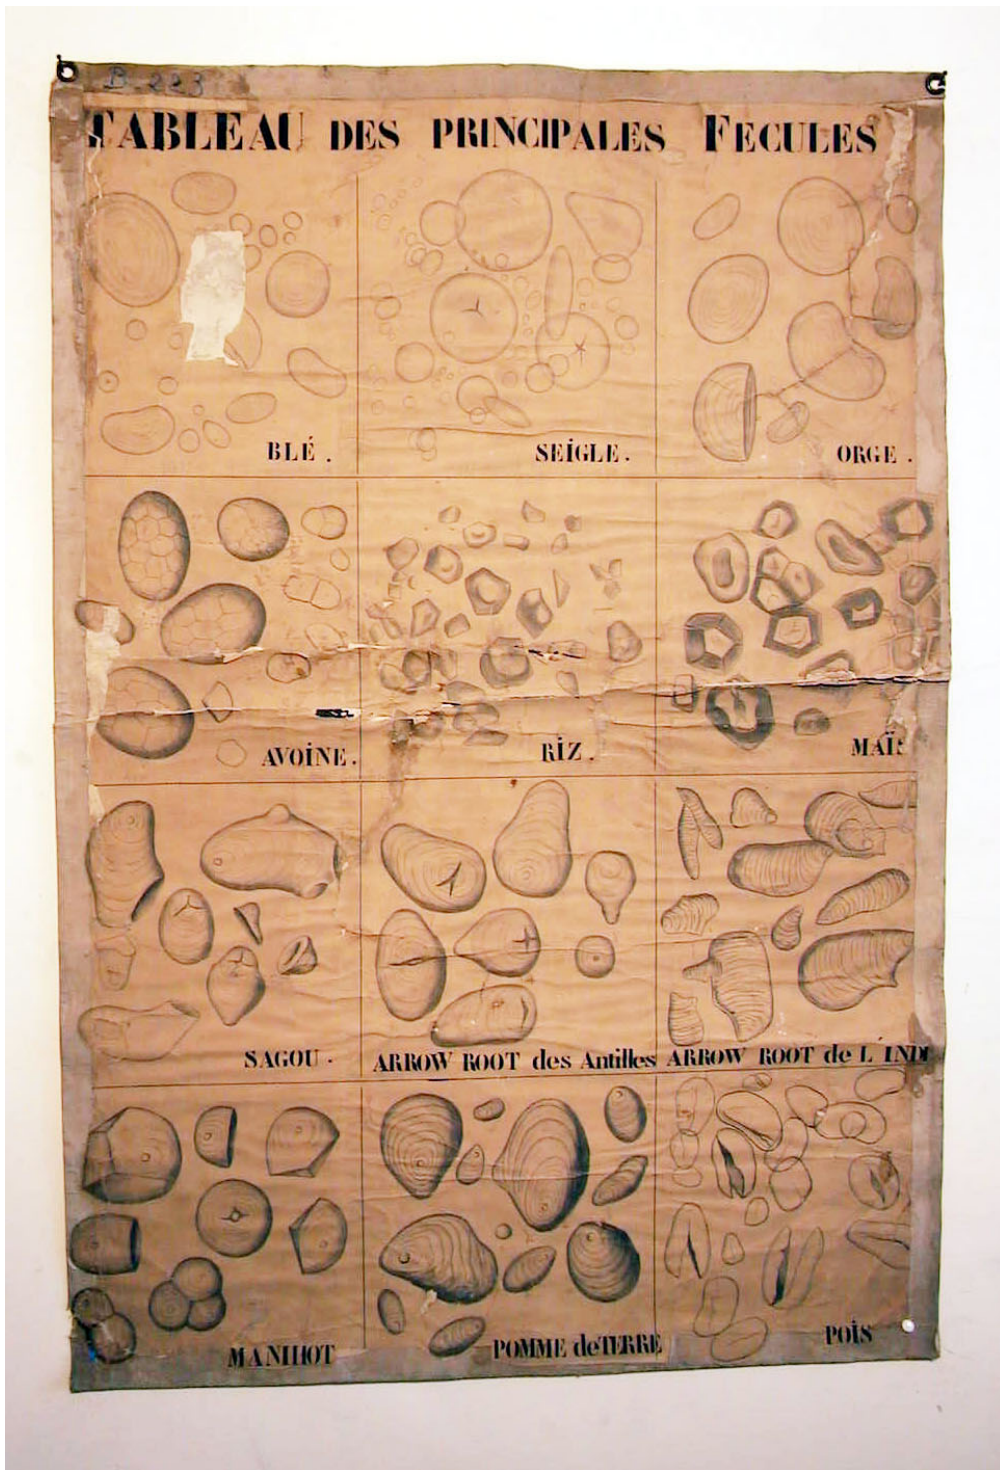 B. 223
TABLEAU DES PRINCIPALES FECULES
BLÉ.
SEİGLE.
ORGE.
AVOİNE.
RİZ.
MAÏS
SAGOU.
ARROW ROOT des Antilles
ARROW ROOT de L'INDE
MANIHOT
POMME de TERRE
POİS